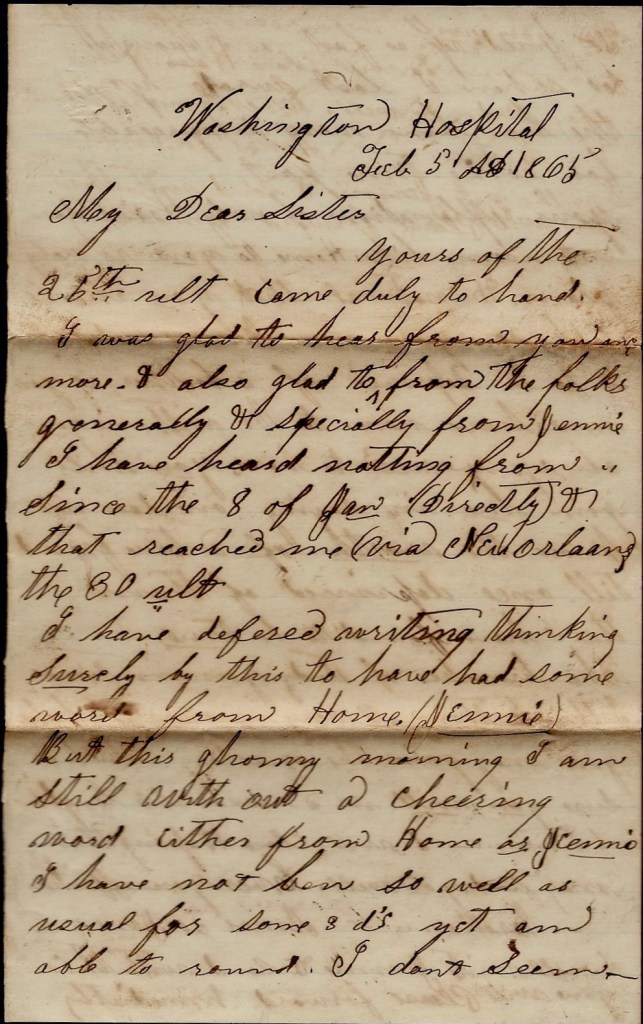 Washington Hospital
Feb 5 AD 1865
My Dear Sister
Yours of the
25th ult came duly to hand.
I was glad to hear from you once
more. & also glad to ^ from the folks
generally & specially from Jennie
I have heard notting from "
Since the 8 of Jan (Directly) &
that reached me (via New Orlaans)
the 30 ult
I have defered writing thinking
Surely by this to have had some
word from Home. (Jennie)
But this gloomy morning I am
still with out a cheering
word either from Home or Jennie
I have not ben so well as
usual for some 3 d's yet am
able to round. I dont Seem